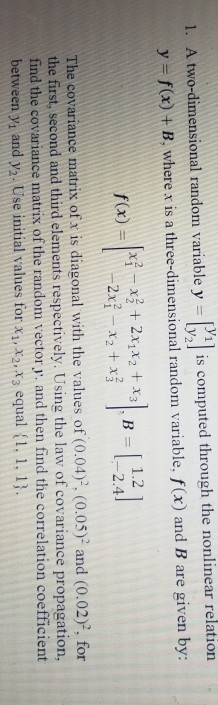 1. A two-dimensional random variable y = [y₁ y₂] is computed through the nonlinear relation
y = f(x) + B, where x is a three-dimensional random variable, f(x) and B are given by:
f(x) = [x₁² − x₂² + 2x₁x₂ + x₃
−2x₁² − x₂ + x₃²], B = [1.2
−2.4]
The covariance matrix of x is diagonal with the values of (0.04)², (0.05)² and (0.02)², for
the first, second and third elements respectively. Using the law of covariance propagation,
find the covariance matrix of the random vector y, and then find the correlation coefficient
between y₁ and y₂. Use initial values for x₁, x₂, x₃ equal {1, 1, 1}.